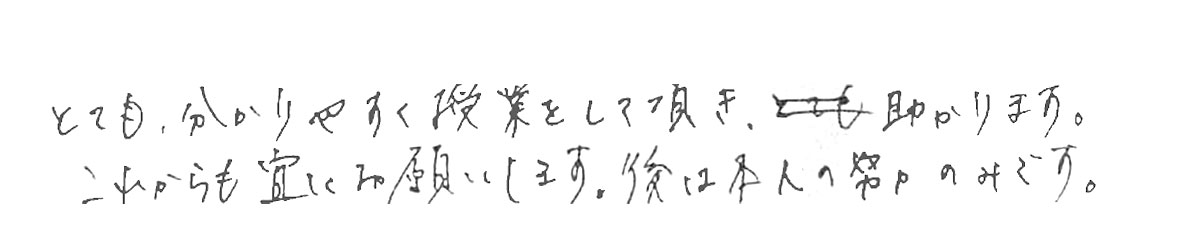 とても、分かりやすく授業をして頂き、助かります。
これからも宜しくお願いします。後は本人の努力のみです。